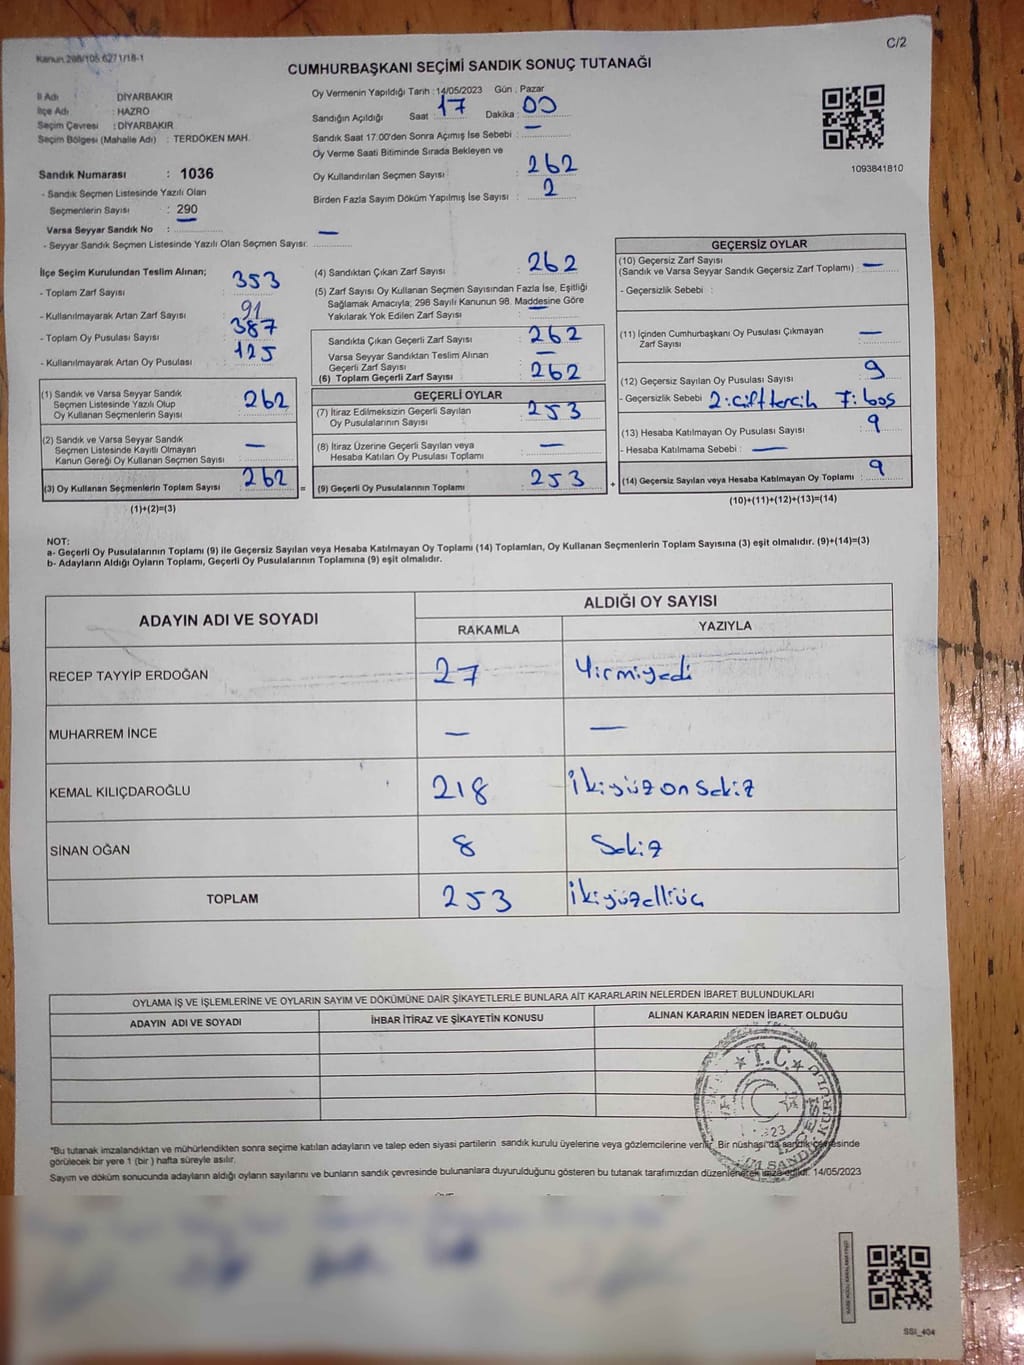 Kanun 298/105 6271/18-1
C/2
CUMHURBAŞKANI SEÇİMİ SANDIK SONUÇ TUTANAĞI
İl Adı : DİYARBAKIR
İlçe Adı : HAZRO
Seçim Çevresi : DİYARBAKIR
Seçim Bölgesi (Mahalle Adı) : TERDÖKEN MAH.
Sandık Numarası : 1036
- Sandık Seçmen Listesinde Yazılı Olan
Seçmenlerin Sayısı : 290
Varsa Seyyar Sandık No : —
- Seyyar Sandık Seçmen Listesinde Yazılı Olan Seçmen Sayısı:
Oy Vermenin Yapıldığı Tarih : 14/05/2023 Gün : Pazar
Sandığın Açıldığı Saat : 17 Dakika : 00
Sandık Saat 17:00'den Sonra Açımış İse Sebebi : —
Oy Verme Saati Bitiminde Sırada Bekleyen ve
Oy Kullandırılan Seçmen Sayısı : 262
Birden Fazla Sayım Döküm Yapılmış İse Sayısı : 2
1093841810
İlçe Seçim Kurulundan Teslim Alınan;
- Toplam Zarf Sayısı : 353
- Kullanılmayarak Artan Zarf Sayısı : 91
- Toplam Oy Pusulası Sayısı : 387
- Kullanılmayarak Artan Oy Pusulası : 125
(1) Sandık ve Varsa Seyyar Sandık
Seçmen Listesinde Yazılı Olup
Oy Kullanan Seçmenlerin Sayısı : 262
(2) Sandık ve Varsa Seyyar Sandık
Seçmen Listesinde Kayıtlı Olmayan
Kanun Gereği Oy Kullanan Seçmen Sayısı : —
(3) Oy Kullanan Seçmenlerin Toplam Sayısı : 262 =
(1)+(2)=(3)
(4) Sandıktan Çıkan Zarf Sayısı : 262
(5) Zarf Sayısı Oy Kullanan Seçmen Sayısından Fazla İse, Eşitliği
Sağlamak Amacıyla; 298 Sayılı Kanunun 98. Maddesine Göre
Yakılarak Yok Edilen Zarf Sayısı : —
Sandıkta Çıkan Geçerli Zarf Sayısı : 262
Varsa Seyyar Sandıktan Teslim Alınan
Geçerli Zarf Sayısı : —
(6) Toplam Geçerli Zarf Sayısı : 262
GEÇERLİ OYLAR
(7) İtiraz Edilmeksizin Geçerli Sayılan
Oy Pusulalarının Sayısı : 253
(8) İtiraz Üzerine Geçerli Sayılan veya
Hesaba Katılan Oy Pusulası Toplamı : —
(9) Geçerli Oy Pusulalarının Toplamı : 253 +
GEÇERSİZ OYLAR
(10) Geçersiz Zarf Sayısı
(Sandık ve Varsa Seyyar Sandık Geçersiz Zarf Toplamı) : —
- Geçersizlik Sebebi :
(11) İçinden Cumhurbaşkanı Oy Pusulası Çıkmayan
Zarf Sayısı : —
(12) Geçersiz Sayılan Oy Pusulası Sayısı : 9
- Geçersizlik Sebebi : 2:çift tercih 7:boş
(13) Hesaba Katılmayan Oy Pusulası Sayısı : 9
- Hesaba Katılmama Sebebi : —
(14) Geçersiz Sayılan veya Hesaba Katılmayan Oy Toplamı : 9
(10)+(11)+(12)+(13)=(14)
NOT:
a- Geçerli Oy Pusulalarının Toplamı (9) ile Geçersiz Sayılan veya Hesaba Katılmayan Oy Toplamı (14) Toplamları, Oy Kullanan Seçmenlerin Toplam Sayısına (3) eşit olmalıdır. (9)+(14)=(3)
b- Adayların Aldığı Oyların Toplamı, Geçerli Oy Pusulalarının Toplamına (9) eşit olmalıdır.
ADAYIN ADI VE SOYADI
ALDIĞI OY SAYISI
RAKAMLA YAZIYLA
RECEP TAYYİP ERDOĞAN 27 Yirmiyedi
MUHARREM İNCE — —
KEMAL KILIÇDAROĞLU 218 İkiyüzonsekiz
SİNAN OĞAN 8 Sekiz
TOPLAM 253 İkiyüzelliüç
OYLAMA İŞ VE İŞLEMLERİNE VE OYLARIN SAYIM VE DÖKÜMÜNE DAİR ŞİKAYETLERLE BUNLARA AİT KARARLARIN NELERDEN İBARET BULUNDUKLARI
ADAYIN ADI VE SOYADI İHBAR İTİRAZ VE ŞİKAYETİN KONUSU ALINAN KARARIN NEDEN İBARET OLDUĞU
T.C.
*Bu tutanak imzalandıktan ve mühürlendikten sonra seçime katılan adayların ve talep eden siyasi partilerin sandık kurulu üyelerine veya gözlemcilerine verilir. Bir nüshası da sandık çevresinde
görülecek bir yere 1 (bir) hafta süreyle asılır.
Sayım ve döküm sonucunda adayların aldığı oyların sayılarını ve bunların sandık çevresinde bulunanlara duyurulduğunu gösteren bu tutanak tarafımızdan düzenlenerek imza edildi. 14/05/2023
SSI_404